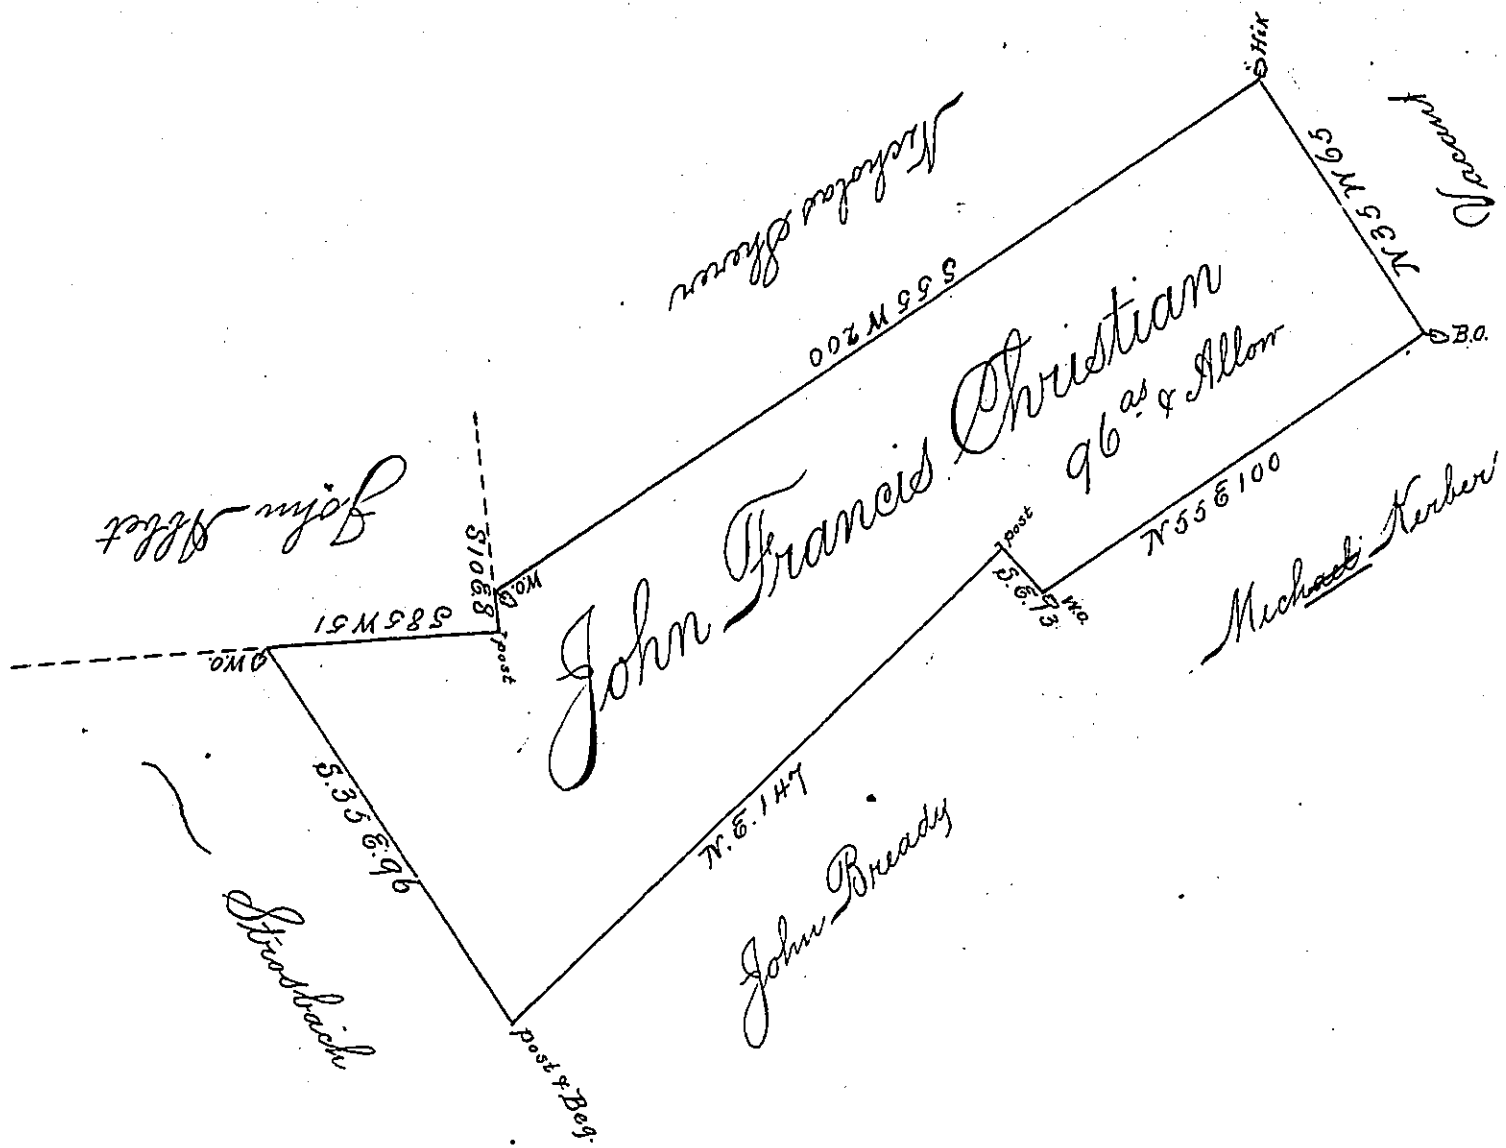 Hix
Vacant
N 35 W 65
Nicholas Sherer
S 55 W 200
B.O.
John Francis Christian
96 as & Allow
N 55 E 100
Michael Kerber
post
S.E. 13
W.O.
John Albet
S 10 E 8
W.O.
S 85 W 51
post
W.O.
S. 35 E. 96
N. E. 147
John Bready
Strosbach
post & Beg.